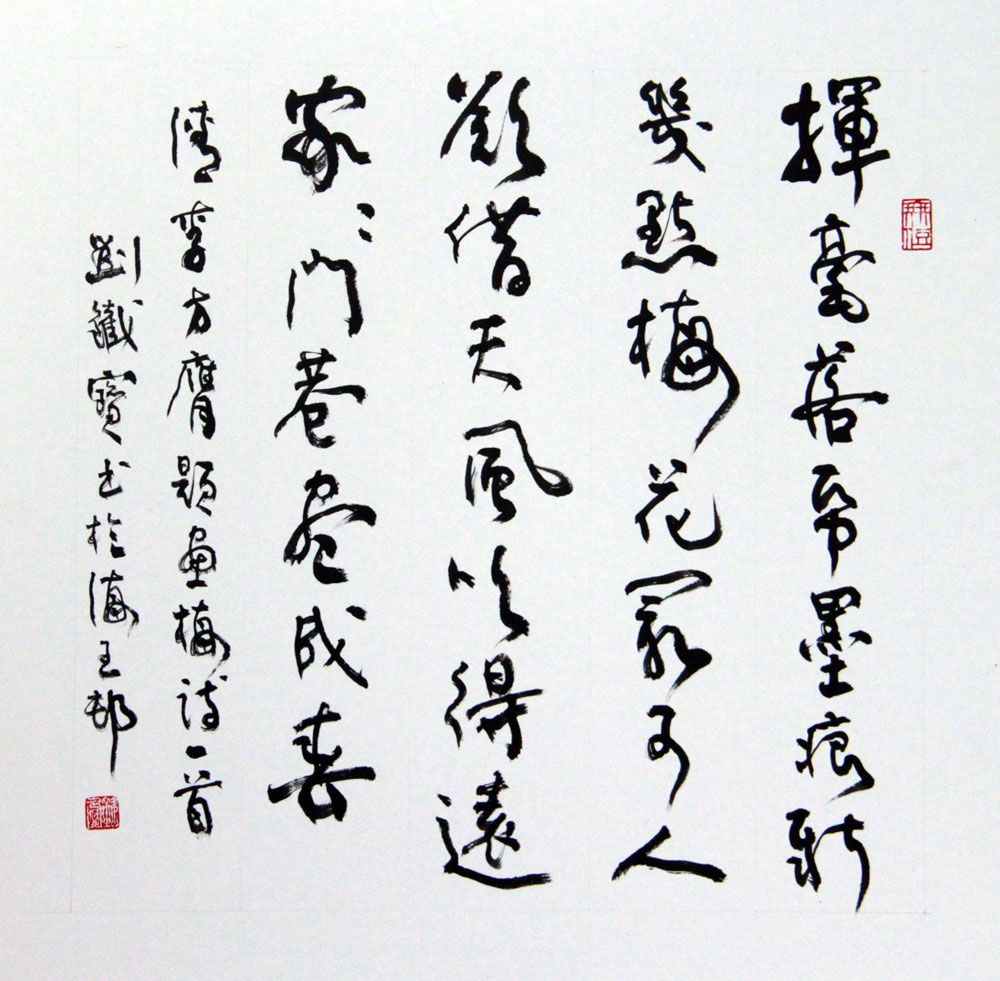 揮毫落帋墨痕新
幾點梅花最可人
願借天風吹得遠
家〻門巷盡成春
清李方膺題畫梅詩一首
劉鐵寶书於海王邨